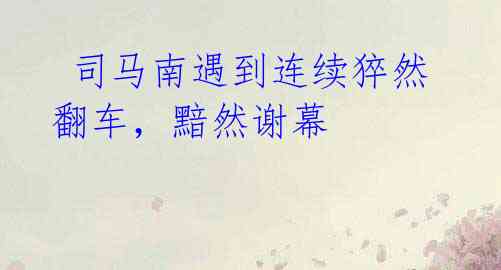 司马南遇到连续猝然
翻车，黯然谢幕